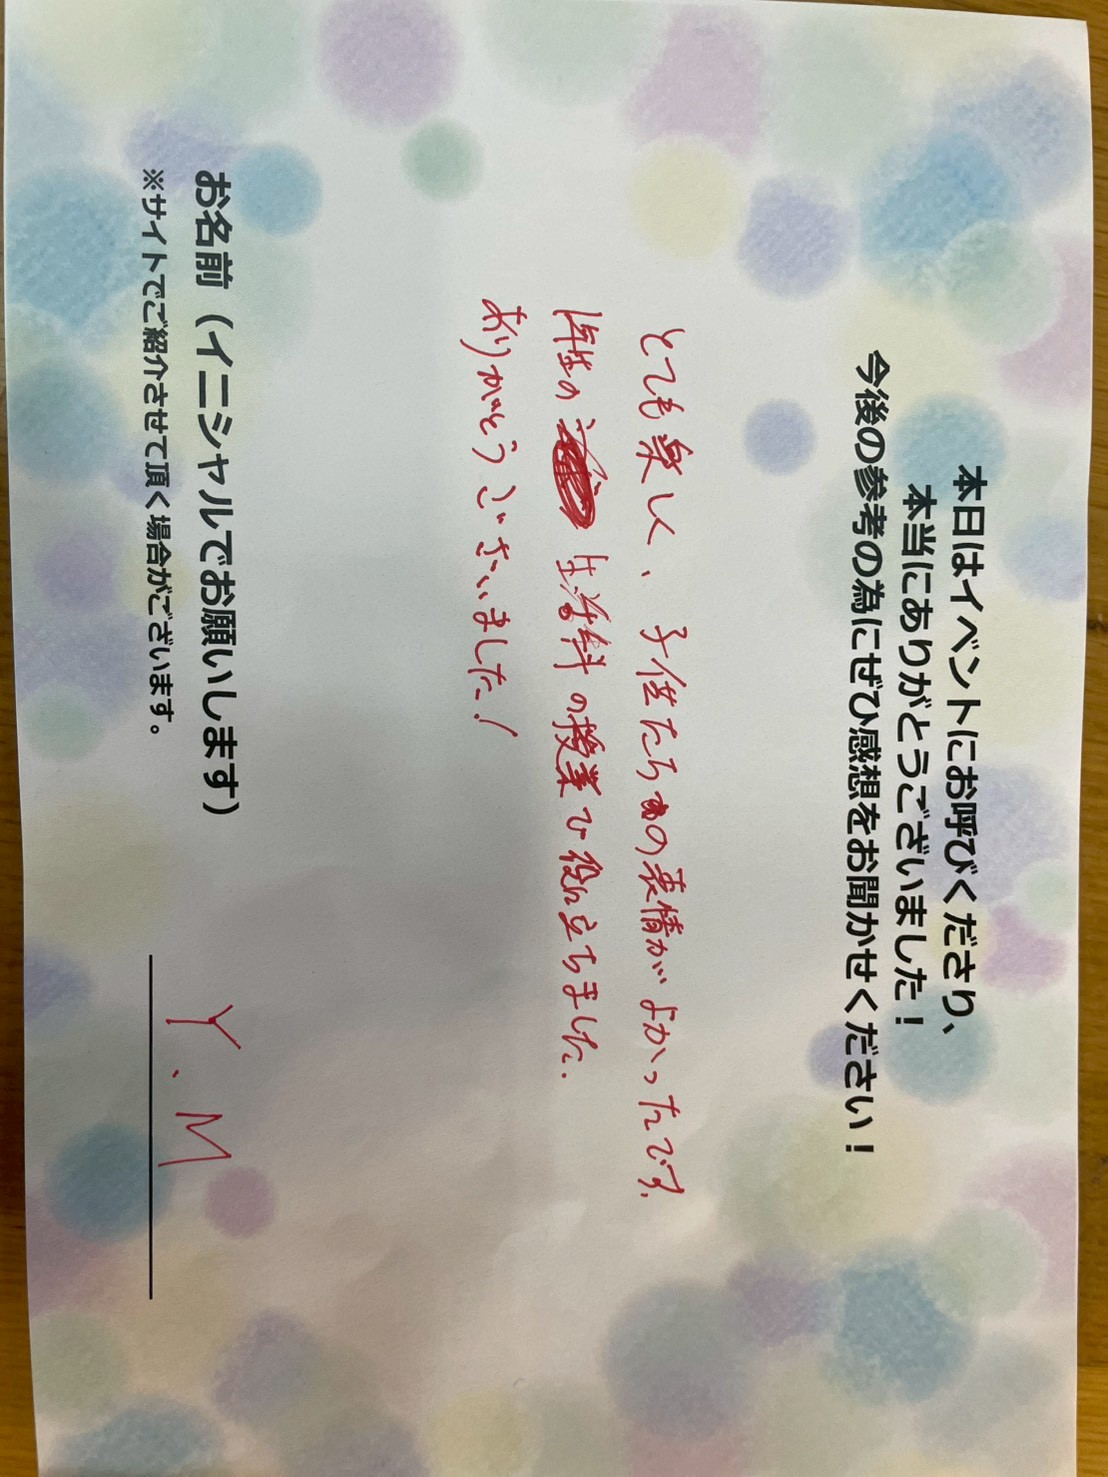 本日はイベントにお呼びくださり、
本当にありがとうございました！
今後の参考の為にぜひ感想をお聞かせください！
とても楽しく、子供たちの表情がよかったです。
1年生の 生活科の授業で役に立ちました。
ありがとうございました！
お名前（イニシャルでお願いします）
Y.M
※サイトでご紹介させて頂く場合がございます。